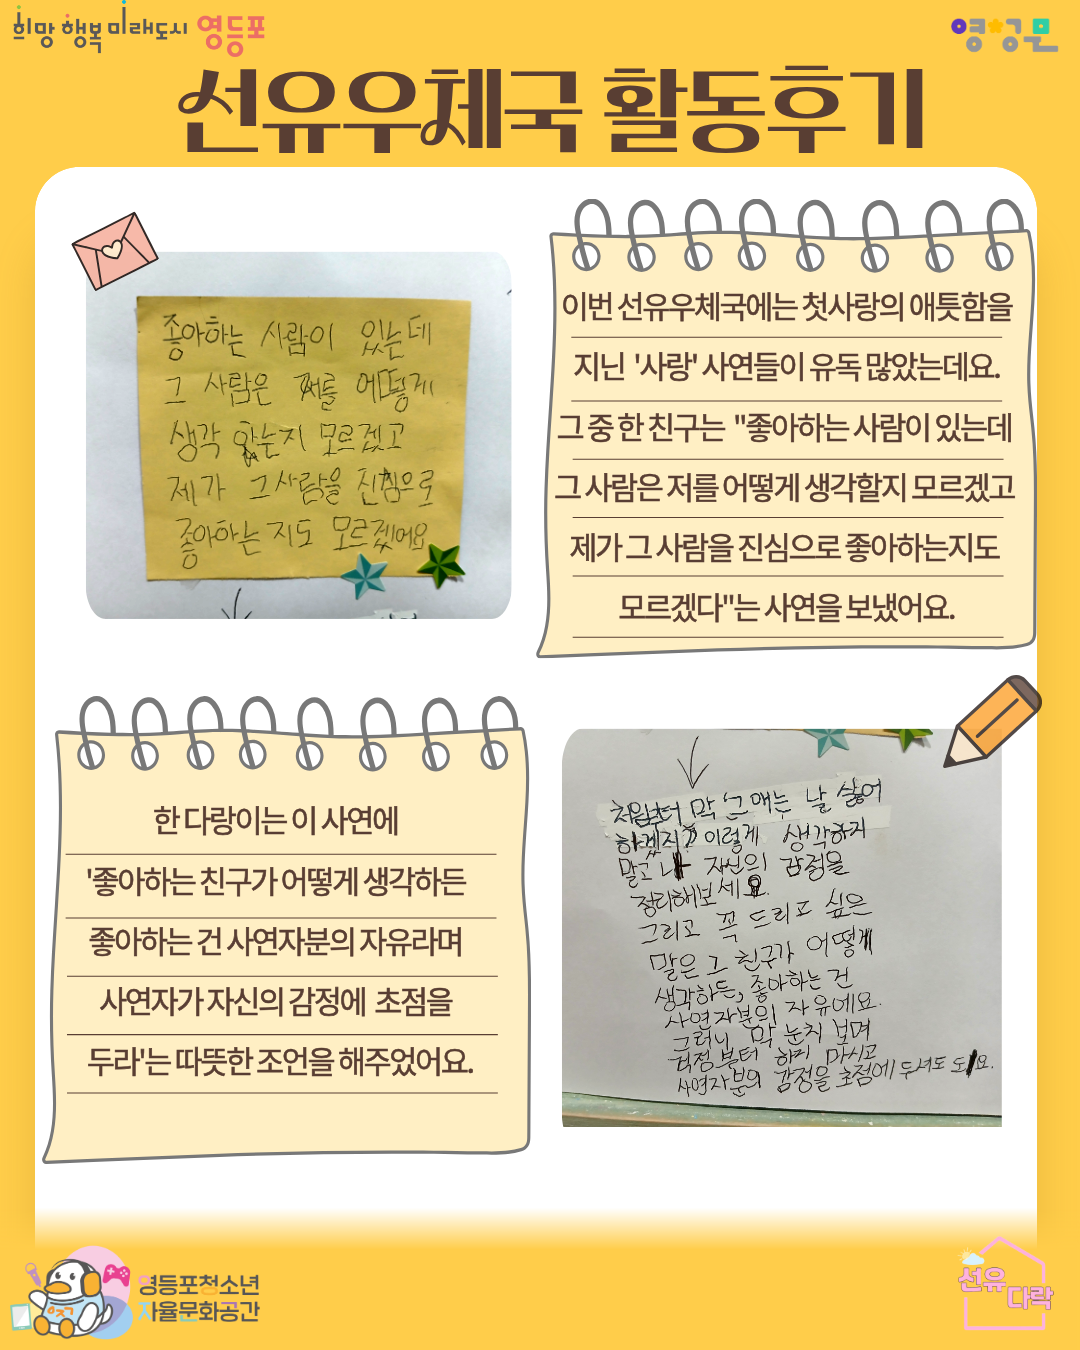 희망 행복 미래도시 영등포
영청문
선유우체국 활동후기
좋아하는 사람이 있는데
그 사람은 저를 어떻게
생각 할는지 모르겠고
제가 그사람을 진심으로
좋아하는 지도 모르겠어요
이번 선유우체국에는 첫사랑의 애틋함을
지닌 '사랑' 사연들이 유독 많았는데요.
그 중 한 친구는 "좋아하는 사람이 있는데
그 사람은 저를 어떻게 생각할지 모르겠고
제가 그 사람을 진심으로 좋아하는지도
모르겠다"는 사연을 보냈어요.
한 다랑이는 이 사연에
'좋아하는 친구가 어떻게 생각하든
좋아하는 건 사연자분의 자유라며
사연자가 자신의 감정에 초점을
두라'는 따뜻한 조언을 해주었어요.
처음부터 막 '그 애는 날 싫어
하겠지?' 이렇게 생각하지
말고 자신의 감정을
정리해보세요.
그리고 꼭 드리고 싶은
말은 그 친구가 어떻게
생각하든, 좋아하는 건
사연자분의 자유에요.
그러니 막 눈치 보며
걱정부터 하지 마시고
사연자분의 감정을 초점에 두셔도 돼요.
영등포청소년
자율문화공간
선유
다락